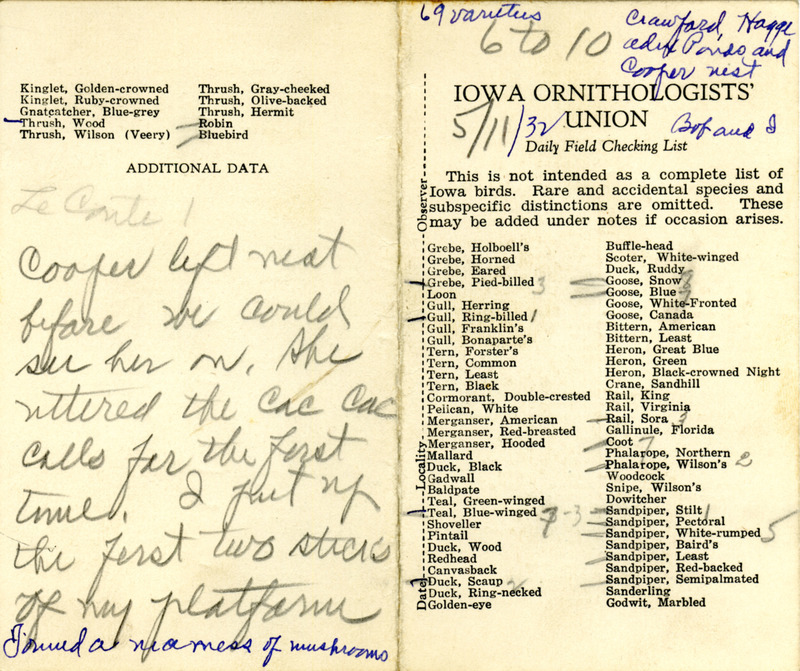 Kinglet, Golden-crowned
Kinglet, Ruby-crowned
Gnatcatcher, Blue-grey
Thrush, Wood
Thrush, Wilson (Veery)
Thrush, Gray-cheeked
Thrush, Olive-backed
Thrush, Hermit
Robin
Bluebird
ADDITIONAL DATA
Le Conte 1
Cooper left nest
before we could
see her on. She
uttered the cac cac
calls for the first
time. I put up
the first two sticks
of my platform
Found a nice mess of mushrooms
69 varieties
6 to 10
Crawford, Hagge
Ponds and
Cooper nest
IOWA ORNITHOLOGISTS'
UNION
5/11/32
Bob and I
Daily Field Checking List
This is not intended as a complete list of
Iowa birds. Rare and accidental species and
subspecific distinctions are omitted. These
may be added under notes if occasion arises.
Observer
Locality
Date
Grebe, Holboell's
Grebe, Horned
Grebe, Eared
Grebe, Pied-billed 3
Loon
Gull, Herring
Gull, Ring-billed 1
Gull, Franklin's
Gull, Bonaparte's
Tern, Forster's
Tern, Common
Tern, Least
Tern, Black
Cormorant, Double-crested
Pelican, White
Merganser, American
Merganser, Red-breasted
Merganser, Hooded
Mallard
Duck, Black
Gadwall
Baldpate
Teal, Green-winged
Teal, Blue-winged
Shoveller
Pintail
Duck, Wood
Redhead
Canvasback
Duck, Scaup
Duck, Ring-necked 2
Golden-eye
Buffle-head
Scoter, White-winged
Duck, Ruddy
Goose, Snow
Goose, Blue
Goose, White-Fronted
Goose, Canada
Bittern, American
Bittern, Least
Heron, Great Blue
Heron, Green
Heron, Black-crowned Night
Crane, Sandhill
Rail, King
Rail, Virginia
Rail, Sora 3
Gallinule, Florida
Coot 7
Phalarope, Northern
Phalarope, Wilson's 2
Woodcock
Snipe, Wilson's
Dowitcher
Sandpiper, Stilt 1
Sandpiper, Pectoral
Sandpiper, White-rumped 5
Sandpiper, Baird's
Sandpiper, Least
Sandpiper, Red-backed
Sandpiper, Semipalmated
Sanderling
Godwit, Marbled